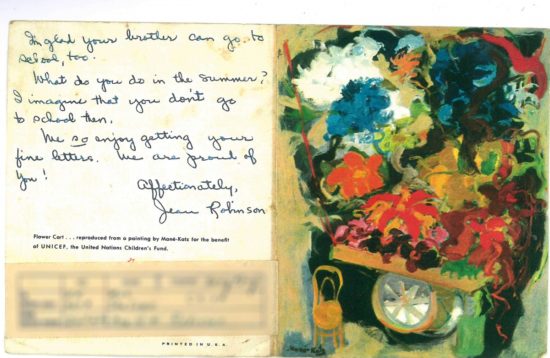 I'm glad your brother can go to
school, too.
What do you do in the summer?
I imagine that you don't go
to school then.
We so enjoy getting your
fine letters. We are proud of
you!
Affectionately,
Jean Robinson
Flower Cart . . . reproduced from a painting by Mané-Katz for the benefit
of UNICEF, the United Nations Children's Fund.
PRINTED IN U. S. A.
Mané-Katz